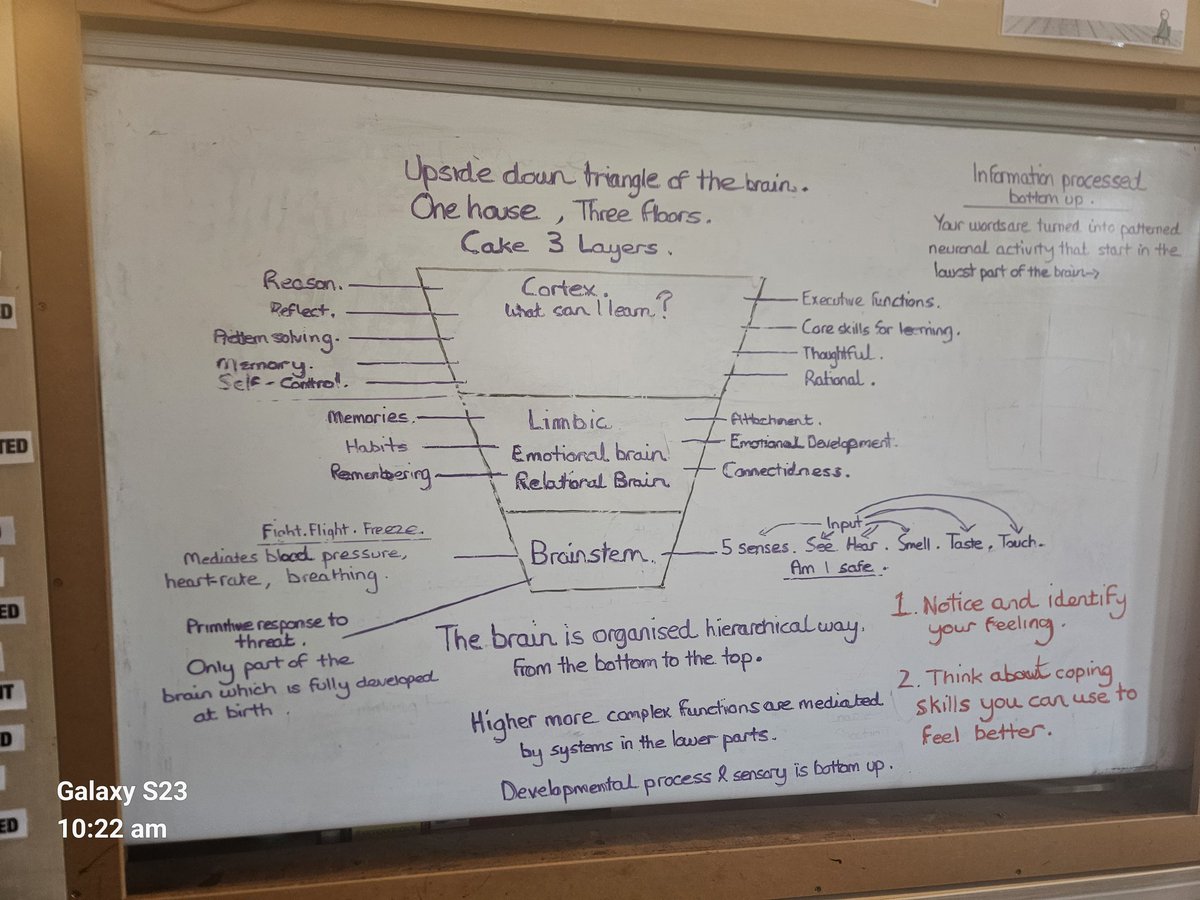 Upside down triangle of the brain.
One house, Three floors.
Cake 3 Layers.
Information processed
bottom up.
Your words are turned into patterned
neuronal activity that start in the
lowest part of the brain→
Reason.
Reflect.
solving.
Memory.
Self-Control.
Cortex.
What can I learn?
Executive functions.
Core skills for learning.
Thoughtful.
Rational.
Memories.
Habits
Remembering
Limbic
Emotional brain
Relational Brain
Attachment.
Emotional Development.
Connectidness.
Fight. Flight. Freeze.
Mediates blood pressure,
heart-rate, breathing.
Brainstem.
Input
5 senses. See Hear. Smell. Taste. Touch.
Am I safe.
Primitive response to
threat.
Only part of the
brain which is fully developed
at birth.
The brain is organised hierarchical way.
from the bottom to the top.
Higher more complex functions are mediated
by systems in the lower parts.
Developmental process & sensory is bottom up.
1. Notice and identify
your feeling.
2. Think about coping
skills you can use to
feel better.
D
TED
ED
IT
D
ED
Galaxy S23
10:22 am